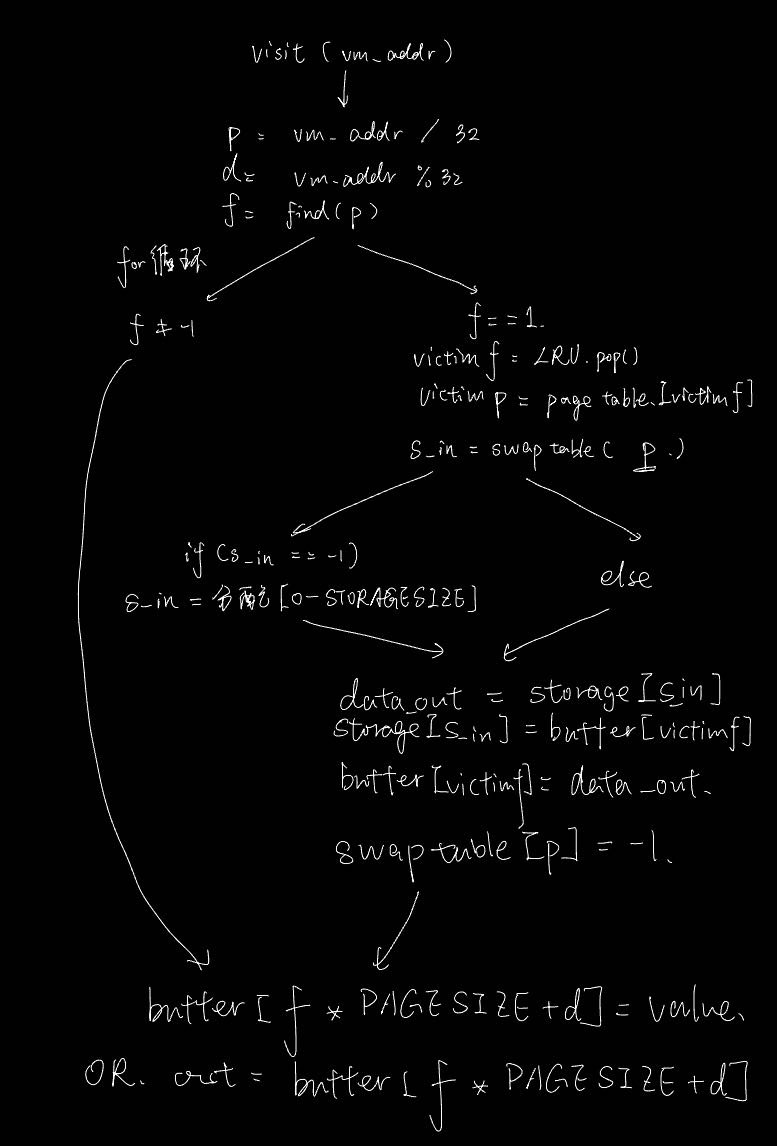 visit (vm_addr)
p = vm_addr / 32
d = vm_addr % 32
f = find(p)
for循环
f ≠ -1
f == 1.
victim f = LRU.pop()
victim p = page table.[victim f]
s_in = swap table ( p .)
if (s_in == -1)
s_in = 分配 [0-STORAGESIZE]
else
data_out = storage [s_in]
storage[s_in] = buffer[victimf]
buffer [victimf] = data_out.
swap table [p] = -1.
buffer [ f * PAGESIZE + d] = value.
OR. out = buffer [ f * PAGESIZE + d]